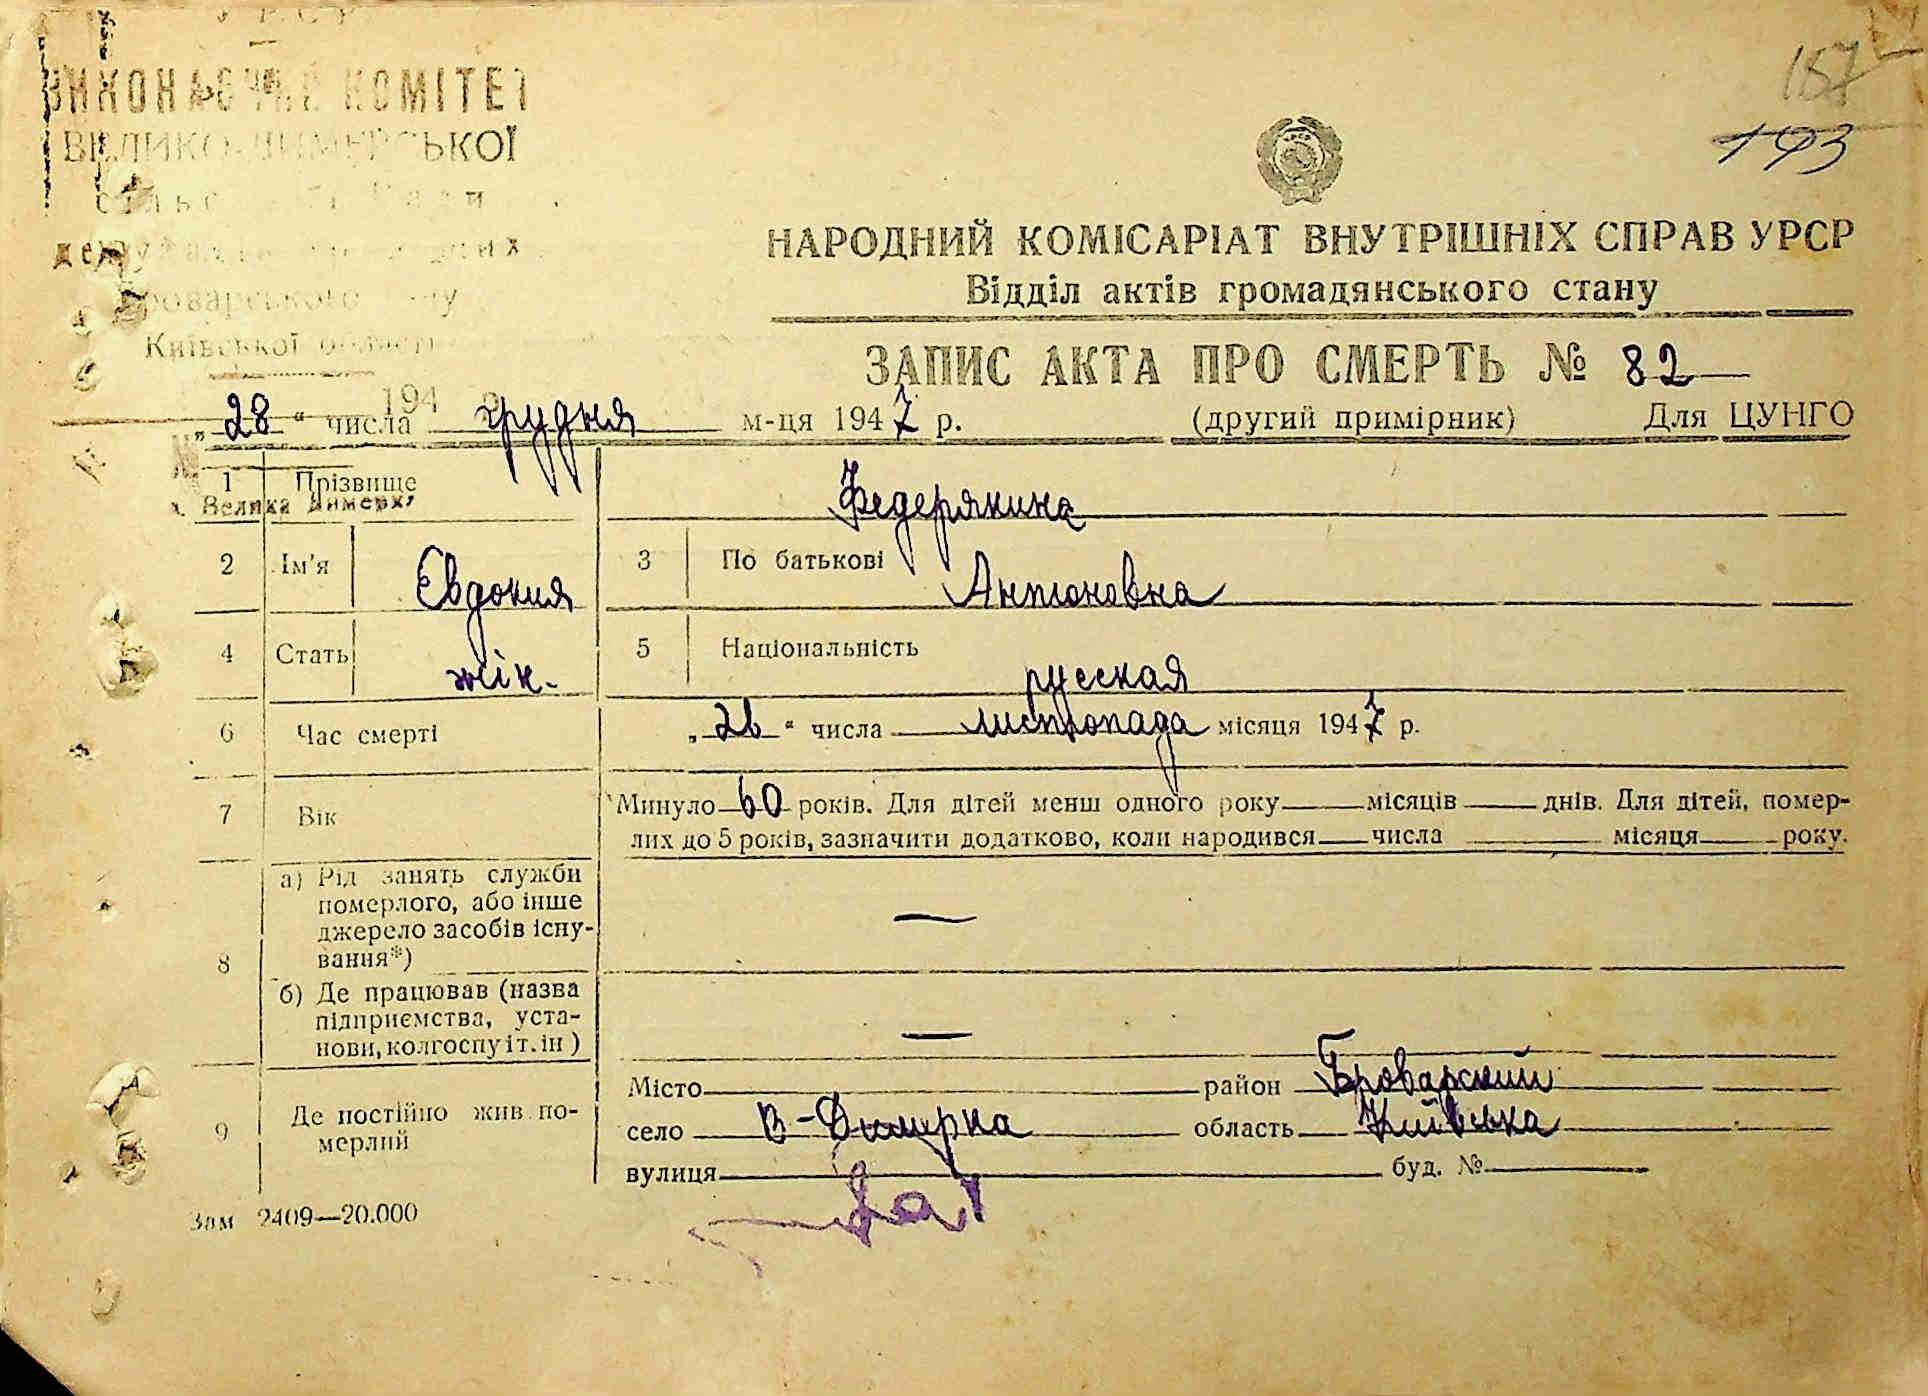 У Р С Р
ВИКОНАВЧИЙ КОМІТЕТ
ВЕЛИКО-ДИМЕРСЬКОЇ
сільс Ради
депутатів
Броварського
Київської області
194
№
с. Велика Димерка
187
193
НАРОДНИЙ КОМІСАРІАТ ВНУТРІШНІХ СПРАВ УРСР
Відділ актів громадянського стану
ЗАПИС АКТА ПРО СМЕРТЬ № 82
„28“ числа грудня м-ця 1947 р. (другий примірник) Для ЦУНГО
1 Прізвище Федерякина
2 Ім'я Евдокия 3 По батькові Антоновна
4 Стать жін. 5 Національність русская
6 Час смерті „26“ числа листопада місяця 1947 р.
7 Вік Минуло 60 років. Для дітей менш одного року місяців днів. Для дітей, помер-
лих до 5 років, зазначити додатково, коли народився числа місяця року.
8 а) Рід занять служби
померлого, або інше
джерело засобів існу-
вання*) —
б) Де працював (назва
підприємства, уста-
нови, колгоспу і т. ін) —
9 Де постійно жив по-
мерлий
Місто район Броварский
село В-Димірка область Київська
вулиця буд. №
Зам 2409—20.000